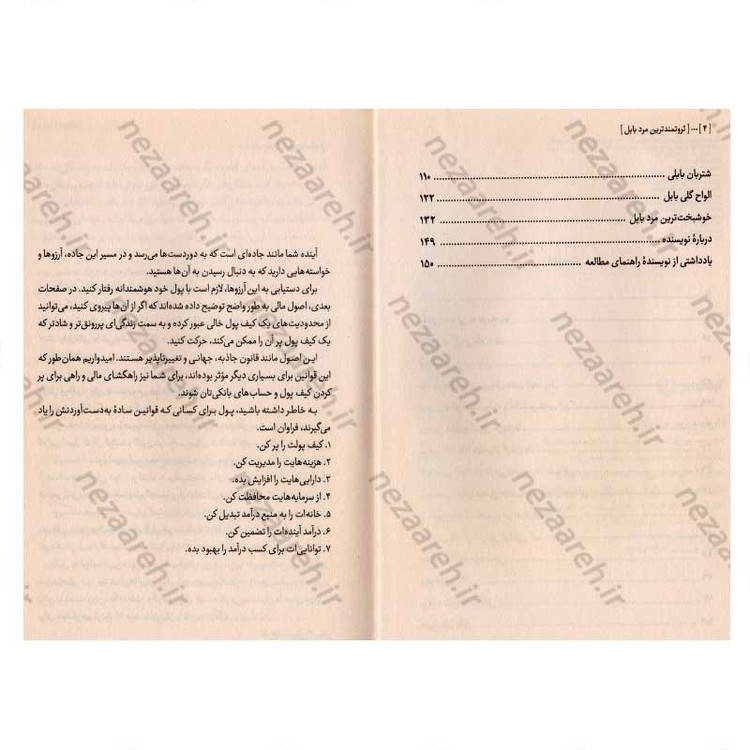 [۴] ... [ثروتمندترین مرد بابل]
شتربان بابلی ........ ۱۱۰
الواح گلی بابل ........ ۱۲۲
خوشبخت‌ترین مرد بابل ........ ۱۳۲
دربارهٔ نویسنده ........ ۱۴۹
یادداشتی از نویسندهٔ راهنمای مطالعه ........ ۱۵۰
آینده شما مانند جاده‌ای است که به دوردست‌ها می‌رسد و در مسیر این جاده، آرزوها و
خواسته‌هایی دارید که به دنبال رسیدن به آن‌ها هستید.
برای دستیابی به این آرزوها، لازم است با پول خود هوشمندانه رفتار کنید. در صفحات
بعدی، اصول مالی به طور واضح توضیح داده شده‌اند که اگر از آن‌ها پیروی کنید، می‌توانید
از محدودیت‌های یک کیف پول خالی عبور کرده و به سمت زندگی‌ای پررونق‌تر و شادتر که
یک کیف پول پر آن را ممکن می‌کند، حرکت کنید.
این اصول مانند قانون جاذبه، جهانی و تغییرناپذیر هستند. امیدواریم همان‌طور که
این قوانین برای بسیاری دیگر مؤثر بوده‌اند، برای شما نیز راهگشای مالی و راهی برای پر
کردن کیف پول و حساب‌های بانکی‌تان شوند.
به خاطر داشته باشید، پول برای کسانی که قوانین سادهٔ به‌دست‌آوردنش را یاد
می‌گیرند، فراوان است.
۱. کیف پولت را پر کن.
۲. هزینه‌هایت را مدیریت کن.
۳. دارایی‌هایت را افزایش بده.
۴. از سرمایه‌هایت محافظت کن.
۵. خانه‌ات را به منبع درآمد تبدیل کن.
۶. درآمد آینده‌ات را تضمین کن.
۷. توانایی‌ات برای کسب درآمد را بهبود بده.
nezaareh.ir
nezaareh.ir
nezaareh.ir
nezaareh.ir
nezaareh.ir
nezaareh.ir